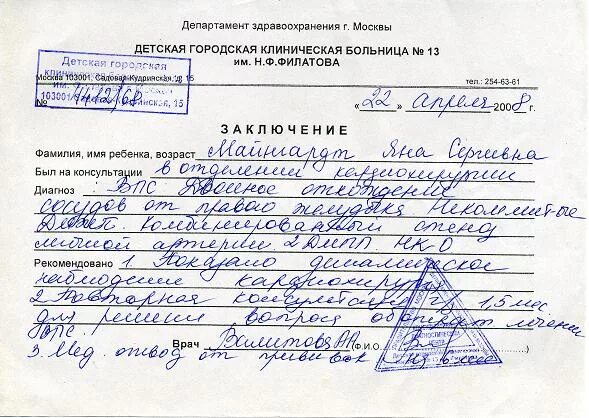 Департамент здравоохранения г. Москвы
ДЕТСКАЯ ГОРОДСКАЯ КЛИНИЧЕСКАЯ БОЛЬНИЦА № 13
им. Н.Ф.ФИЛАТОВА
Детская городская
клиническая
Москва 103001, Садовая-Кудринская, д. 15
тел.: 254-63-61
103001
№
«22» апреля 2008 г.
ЗАКЛЮЧЕНИЕ
Фамилия, имя ребенка, возраст Майнгардт Яна Сергеевна
Был на консультации в отделении кардиохирургии
Диагноз: ВПС Двойное отхождение
сосудов от правого желудочка
Комбинированный стеноз
легочной артерии. 2 ДМПП НК-0
Рекомендовано 1. Показано динамическое
наблюдение кардиохирурга
2. Повторная консультация 1,5 мес
для решения вопроса об операт. лечении
ВПС.
Врач (Ф.И.О.)
3. Мед. отвод от прививок на 6 мес